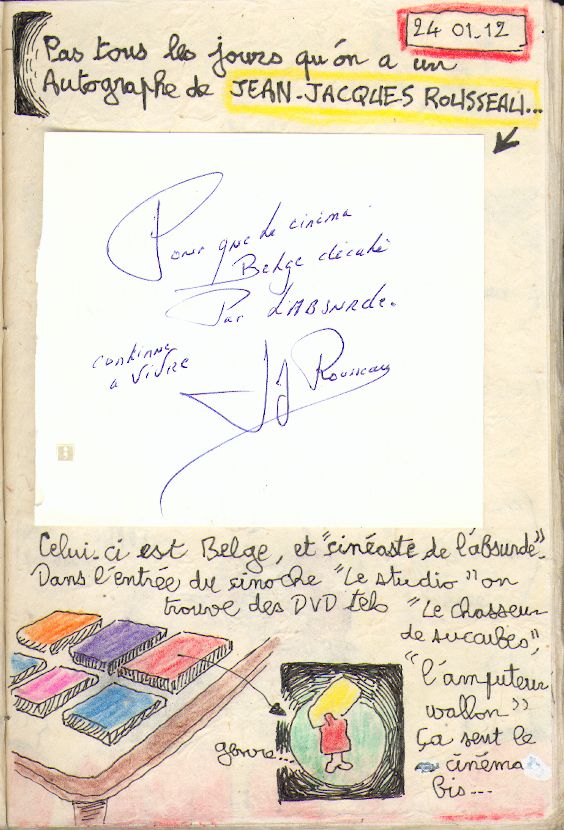 24 01_12
Pas tous les jours qu'on a un
Autographe de JEAN-JACQUES ROUSSEAU...
Pour que le cinéma
Belge décalé
Par L'ABSURDE.
continue
a vivre
JJ Rousseau
Celui-ci est Belge, et "cinéaste de l'absurde".
Dans l'entrée du cinoche "Le studio" on
trouve des DVD tels "Le chasseur
de succubes",
"l'amputeur
wallon"
Ça sent le
cinéma
bis...
genre...